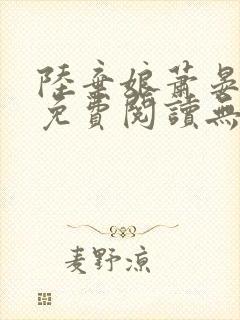 陸棄娘蕭晏
免費閱讀無
麦野凉